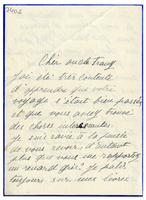 Cher oncle Franz
J'ai été très contente
d'apprendre que votre
voyage s'était bien passé
et que vous aviez trouvé
des choses intéressantes
je me à la pensée
de vous revoir d'autant
plus que vous me rapportez
un renard gris? je
toujours sur une